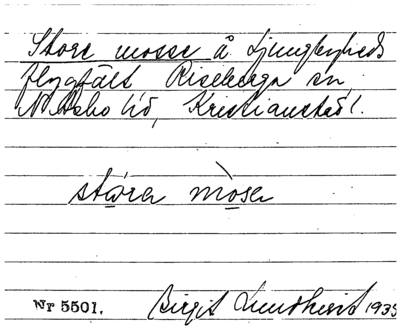 Store mosse å Ljungbyheds
flygfält Riseberga sn,
N. Åsbo hd, Kristianstad l.
stora mòsa
Nr 5501. Birgit Lundkvist 1935